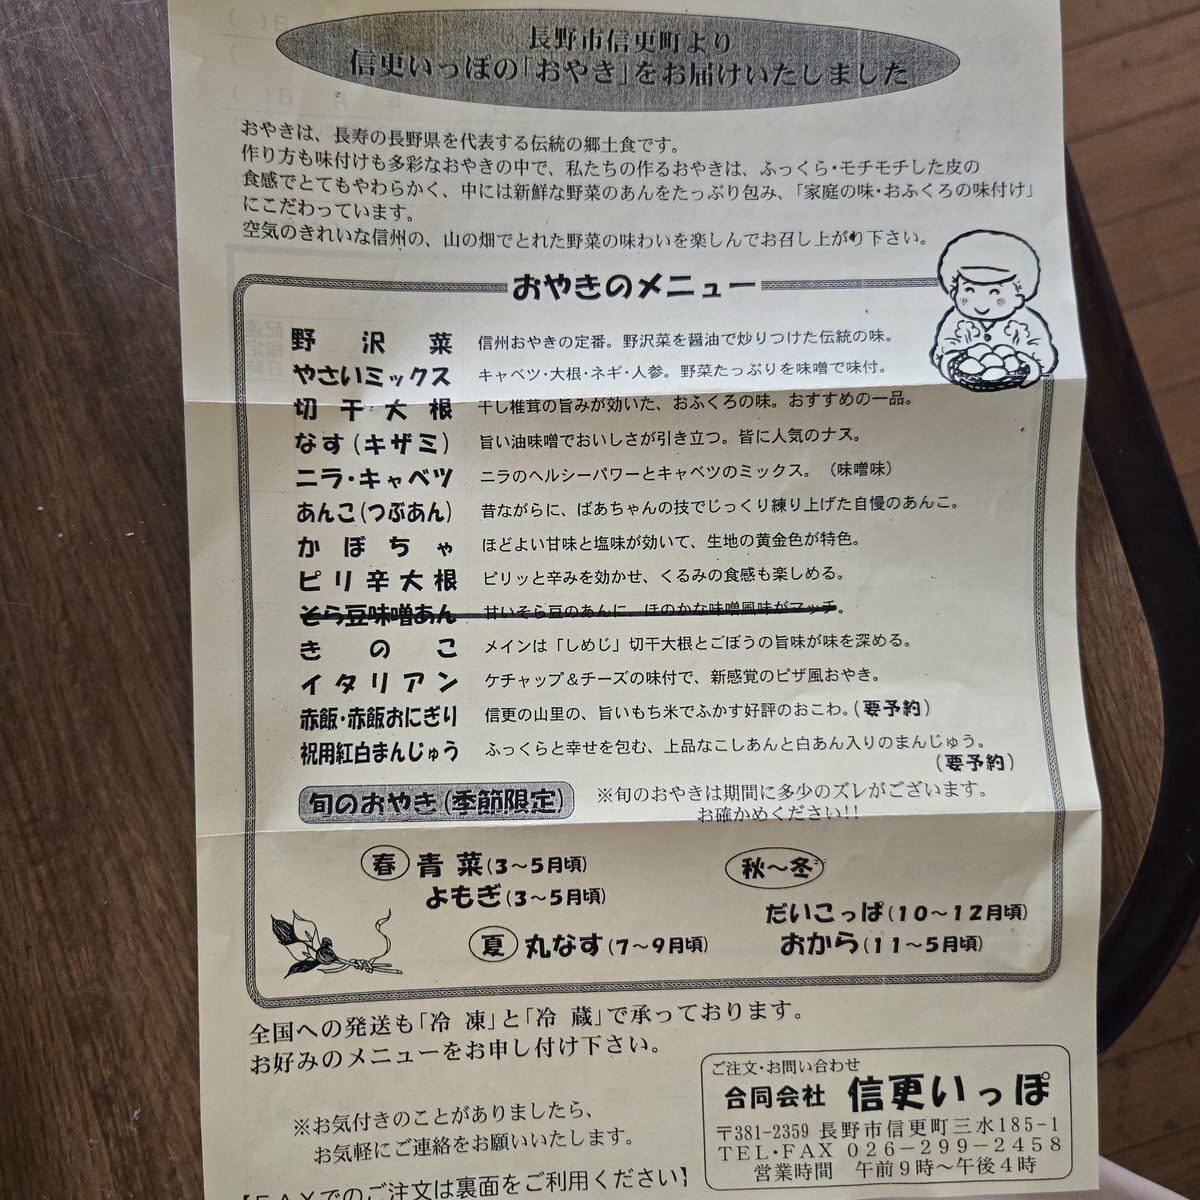 長野市信更町より
信更いっぽの「おやき」をお届けいたしました
おやきは、長寿の長野県を代表する伝統の郷土食です。
作り方も味付けも多彩なおやきの中で、私たちの作るおやきは、ふっくら・モチモチした皮の
食感でとてもやわらかく、中には新鮮な野菜のあんをたっぷり包み、「家庭の味・おふくろの味付け」
にこだわっています。
空気のきれいな信州の、山の畑でとれた野菜の味わいを楽しんでお召し上がり下さい。
おやきのメニュー
野沢菜 信州おやきの定番。野沢菜を醤油で炒りつけた伝統の味。
やさいミックス キャベツ・大根・ネギ・人参。野菜たっぷりを味噌で味付。
切干大根 干し椎茸の旨みが効いた、おふくろの味。おすすめの一品。
なす(キザミ) 旨い油味噌でおいしさが引き立つ。皆に人気のナス。
ニラ・キャベツ ニラのヘルシーパワーとキャベツのミックス。(味噌味)
あんこ(つぶあん) 昔ながらに、ばあちゃんの技でじっくり練り上げた自慢のあんこ。
かぼちゃ ほどよい甘味と塩味が効いて、生地の黄金色が特色。
ピリ辛大根 ピリッと辛みを効かせ、くるみの食感も楽しめる。
そら豆味噌あん 甘いそら豆のあんに、ほのかな味噌風味がマッチ。
きのこ メインは「しめじ」切干大根とごぼうの旨味が味を深める。
イタリアン ケチャップ&チーズの味付で、新感覚のピザ風おやき。
赤飯・赤飯おにぎり 信更の山里の、旨いもち米でふかす好評のおこわ。(要予約)
祝用紅白まんじゅう ふっくらと幸せを包む、上品なこしあんと白あん入りのまんじゅう。
(要予約)
旬のおやき(季節限定) ※旬のおやきは期間に多少のズレがございます。
お確かめください!!
春 青菜(3〜5月頃)
よもぎ(3〜5月頃)
夏 丸なす(7〜9月頃)
秋〜冬
だいこっぱ(10〜12月頃)
おから(11〜5月頃)
全国への発送も「冷凍」と「冷蔵」で承っております。
お好みのメニューをお申し付け下さい。
※お気付きのことがありましたら、
お気軽にご連絡をお願いいたします。
【FAXでのご注文は裏面をご利用ください】
ご注文・お問い合わせ
合同会社 信更いっぽ
〒381-2359 長野市信更町三水185-1
TEL・FAX 026-299-2458
営業時間 午前9時〜午後4時